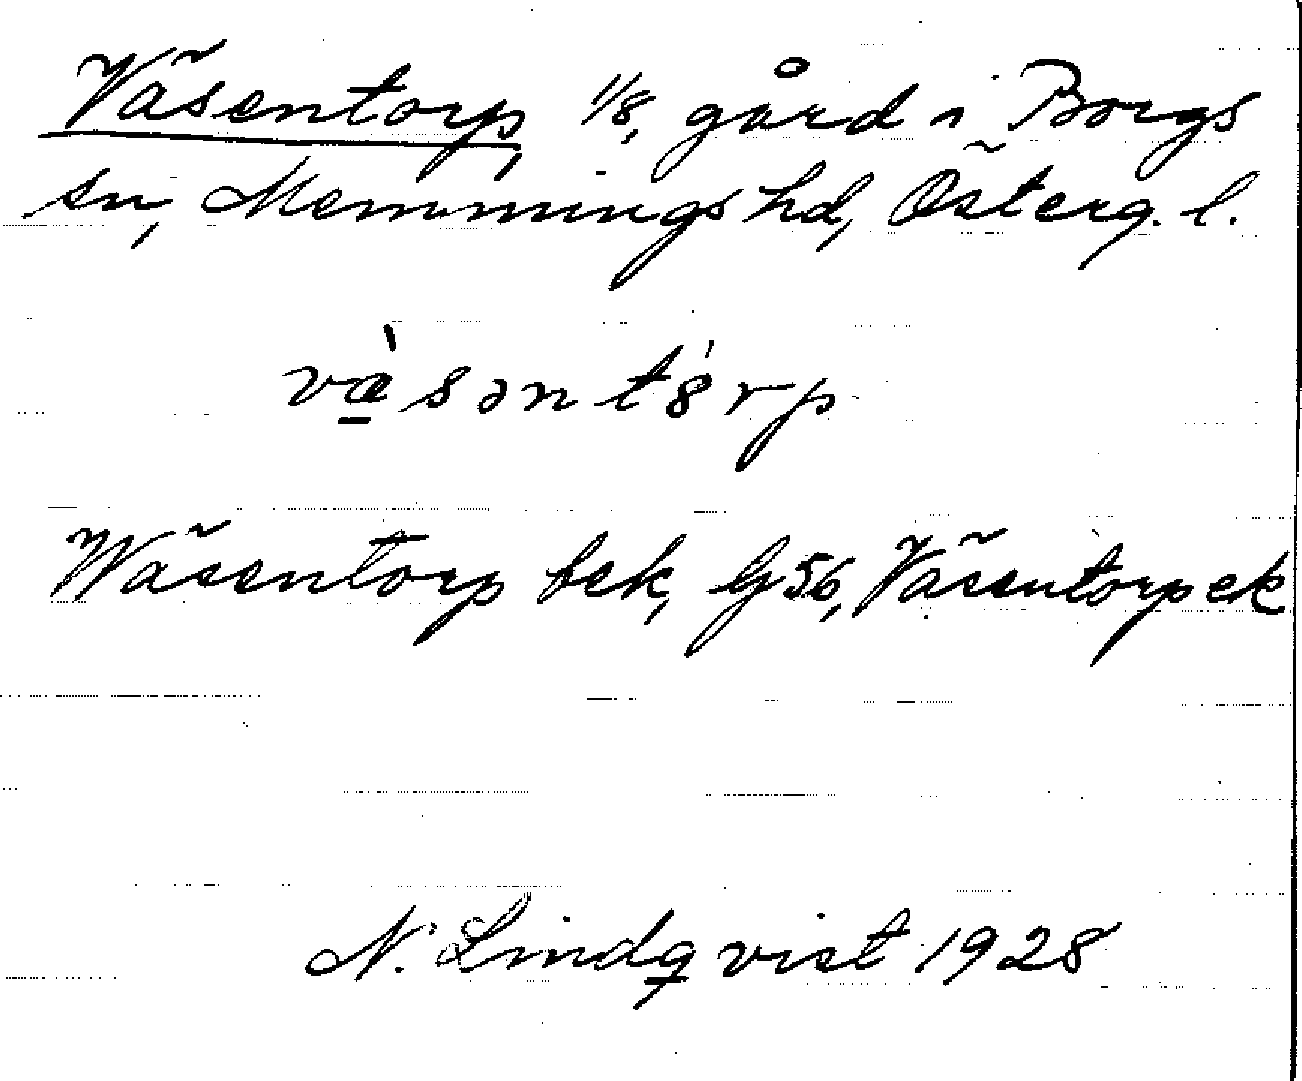 Väsentorp, 1/8, gård i Borgs
sn, Memmings hd, Österg. l.
vä̀səntȯ́rp
Wäsentorp bek, G 56, Väsentorp ek
N. Lindqvist 1928